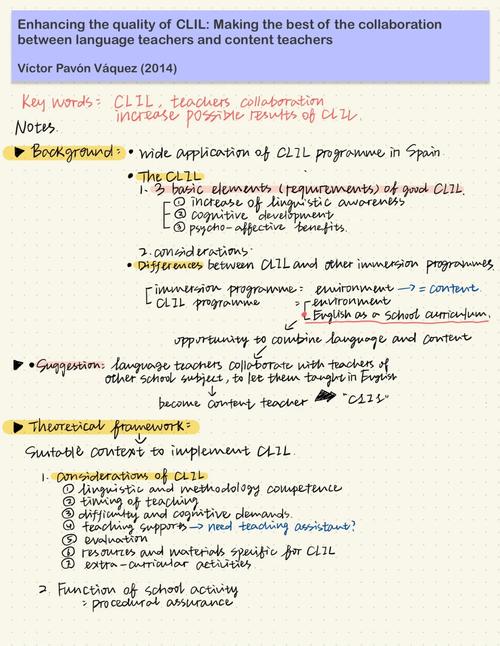 Enhancing the quality of CLIL: Making the best of the collaboration
between language teachers and content teachers
Víctor Pavón Váquez (2014)
Key words: CLIL, teachers collaboration
increase possible results of CLIL.
Notes.
▶ Background: • wide application of CLIL programme in Spain.
• The CLIL
1. 3 basic elements (requirements) of good CLIL.
① increase of linguistic awareness
② cognitive development
③ psycho-affective benefits.
2. considerations:
• Differences between CLIL and other immersion programmes.
immersion programme: environment → = content.
CLIL programme = environment
English as a school curriculum.
opportunity to combine language and content
▶ • Suggestion: language teachers collaborate with teachers of
other school subject, to let them taught in English
↓
become content teacher
▶ Theoretical framework:
↓
Suitable context to implement CLIL.
1. considerations of CLIL
① linguistic and methodology competence
② timing of teaching
③ difficulty and cognitive demands.
④ teaching supports → need teaching assistant?
⑤ evaluation
⑥ resources and materials specific for CLIL
⑦ extra-curricular activities
2. Function of school activity
= procedural assurance